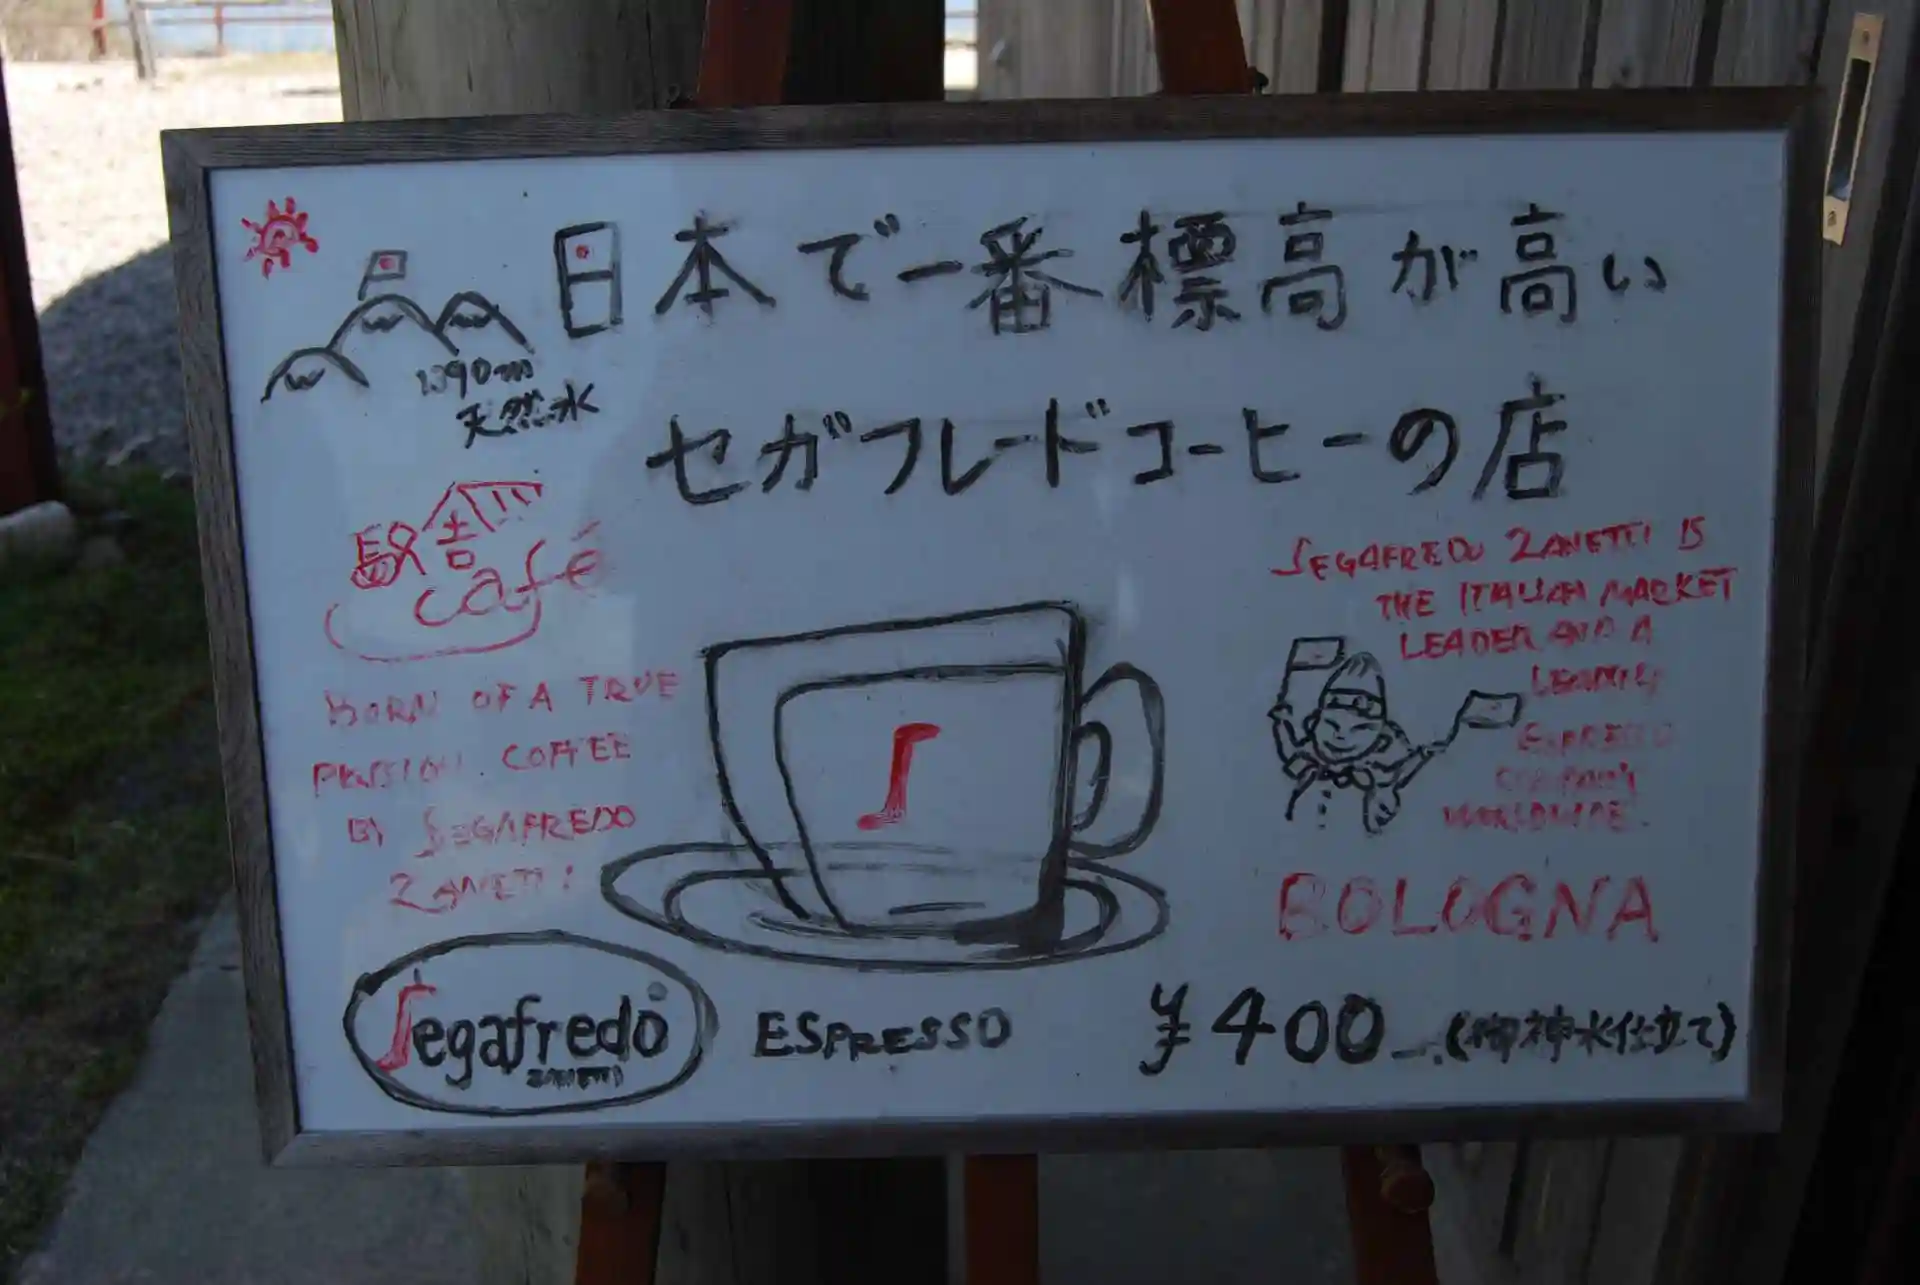 日本で一番標高が高い
1390m
天然水
セガフレードコーヒーの店
駅舎
café
BORN OF A TRUE
PASSION COFFEE
BY SEGAFREDO
ZANETTI!
SEGAFREDO ZANETTI IS
THE ITALIAN MARKET
LEADER AND A
LEADING
ESPRESSO
COMPANY
WORLDWIDE.
BOLOGNA
Segafredo
ZANETTI
ESPRESSO
¥400 (御神水仕立て)